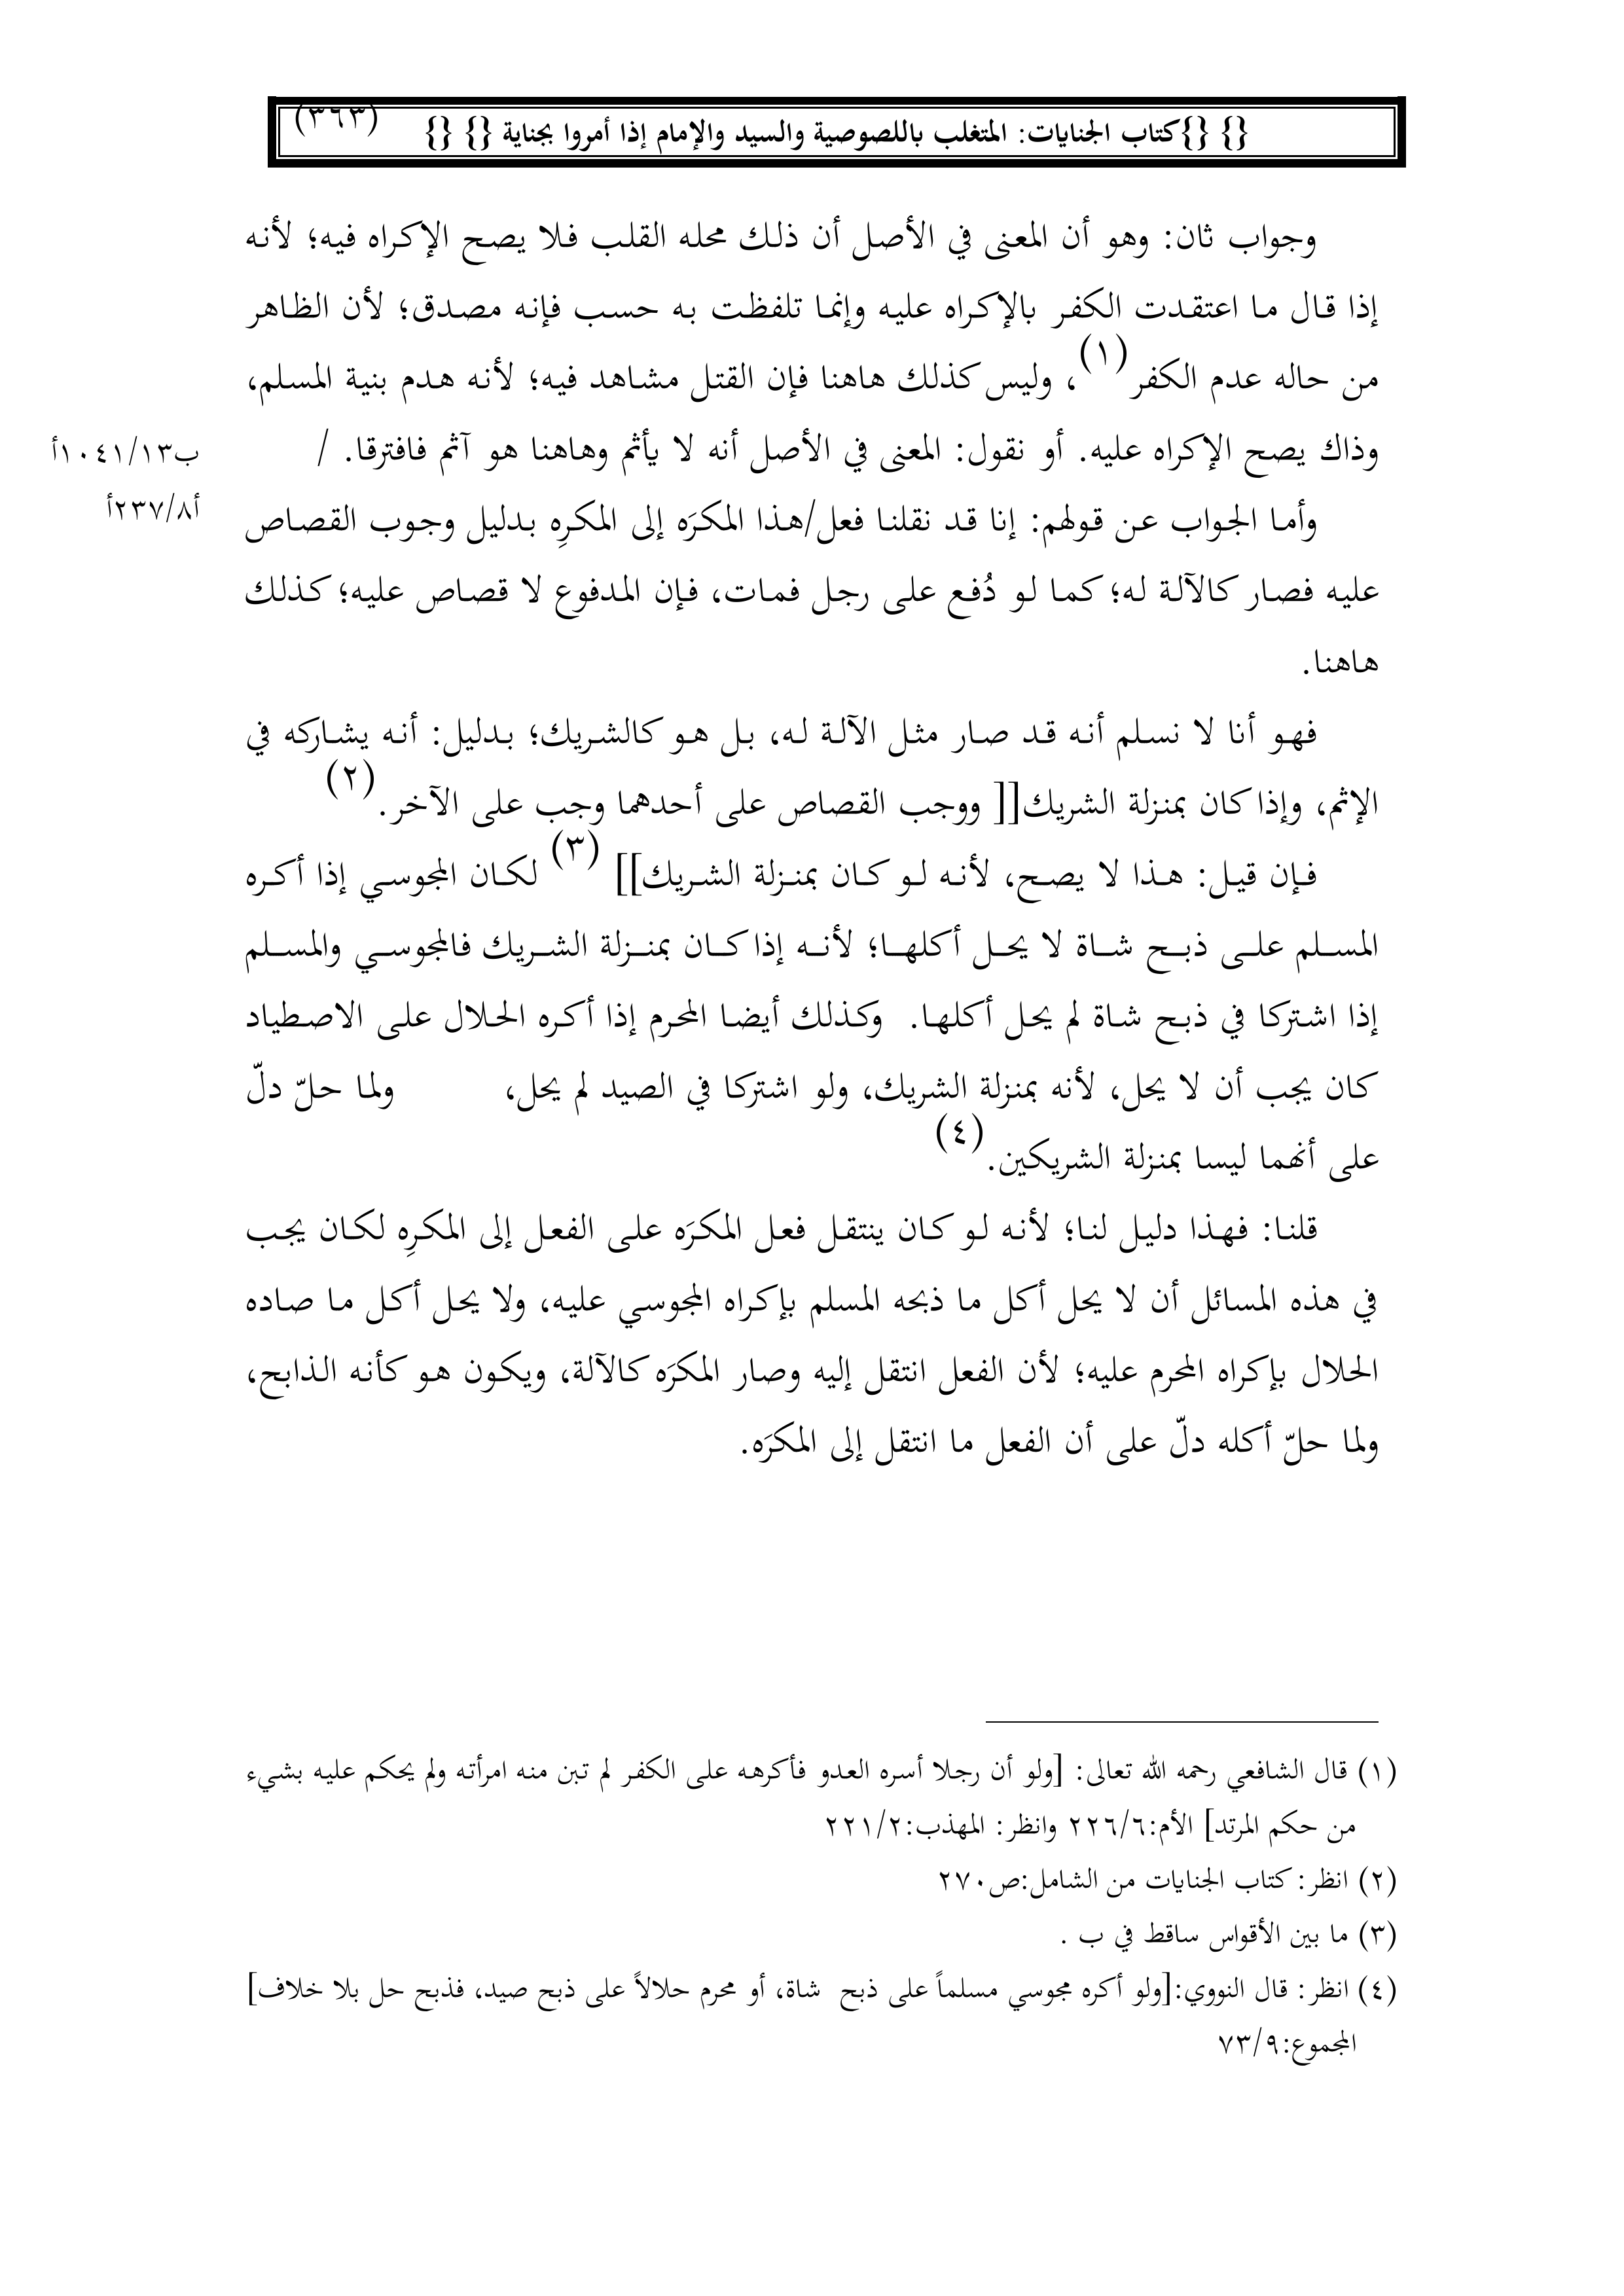 {} {}كتاب الجنايات: المتغلب باللصوصية والسيد والإمام إذا أمروا بجناية {} {} (٣٦٣)
وجواب ثان: وهو أن المعنى في الأصل أن ذلك محله القلب فلا يصح الإكراه فيه؛ لأنه
إذا قال ما اعتقدت الكفر بالإكراه عليه وإنما تلفظت به حسب فإنه مصدق؛ لأن الظاهر
من حاله عدم الكفر(١)، وليس كذلك هاهنا فإن القتل مشاهد فيه؛ لأنه هدم بنية المسلم،
وذاك يصح الإكراه عليه. أو نقول: المعنى في الأصل أنه لا يأثم وهاهنا هو آثم فافترقا. /
ب١٠٤١/١٣أ
وأما الجواب عن قولهم: إنا قد نقلنا فعل/هذا المكرَه إلى المكرِه بدليل وجوب القصاص
أ٢٣٧/٨أ
عليه فصار كالآلة له؛ كما لو دُفع على رجل فمات، فإن المدفوع لا قصاص عليه؛ كذلك
هاهنا.
فهو أنا لا نسلم أنه قد صار مثل الآلة له، بل هو كالشريك؛ بدليل: أنه يشاركه في
الإثم، وإذا كان بمنزلة الشريك[[ ووجب القصاص على أحدهما وجب على الآخر.(٢)
فإن قيل: هذا لا يصح، لأنه لو كان بمنزلة الشريك]] (٣) لكان المجوسي إذا أكره
المسلم على ذبح شاة لا يحل أكلها؛ لأنه إذا كان بمنزلة الشريك فالمجوسي والمسلم
إذا اشتركا في ذبح شاة لم يحل أكلها. وكذلك أيضا المحرم إذا أكره الحلال على الاصطياد
كان يجب أن لا يحل، لأنه بمنزلة الشريك، ولو اشتركا في الصيد لم يحل، ولما حلّ دلّ
على أنهما ليسا بمنزلة الشريكين.(٤)
قلنا: فهذا دليل لنا؛ لأنه لو كان ينتقل فعل المكرَه على الفعل إلى المكرِه لكان يجب
في هذه المسائل أن لا يحل أكل ما ذبحه المسلم بإكراه المجوسي عليه، ولا يحل أكل ما صاده
الحلال بإكراه المحرم عليه؛ لأن الفعل انتقل إليه وصار المكرَه كالآلة، ويكون هو كأنه الذابح،
ولما حلّ أكله دلّ على أن الفعل ما انتقل إلى المكرَه.
(١) قال الشافعي رحمه الله تعالى: [ولو أن رجلا أسره العدو فأكرهه على الكفر لم تبن منه امرأته ولم يحكم عليه بشيء
من حكم المرتد] الأم:٢٢٦/٦ وانظر: المهذب:٢٢١/٢
(٢) انظر: كتاب الجنايات من الشامل:ص٢٧٠
(٣) ما بين الأقواس ساقط في ب .
(٤) انظر: قال النووي:[ولو أكره مجوسي مسلماً على ذبح شاة، أو محرم حلالاً على ذبح صيد، فذبح حل بلا خلاف]
المجموع:٧٣/٩